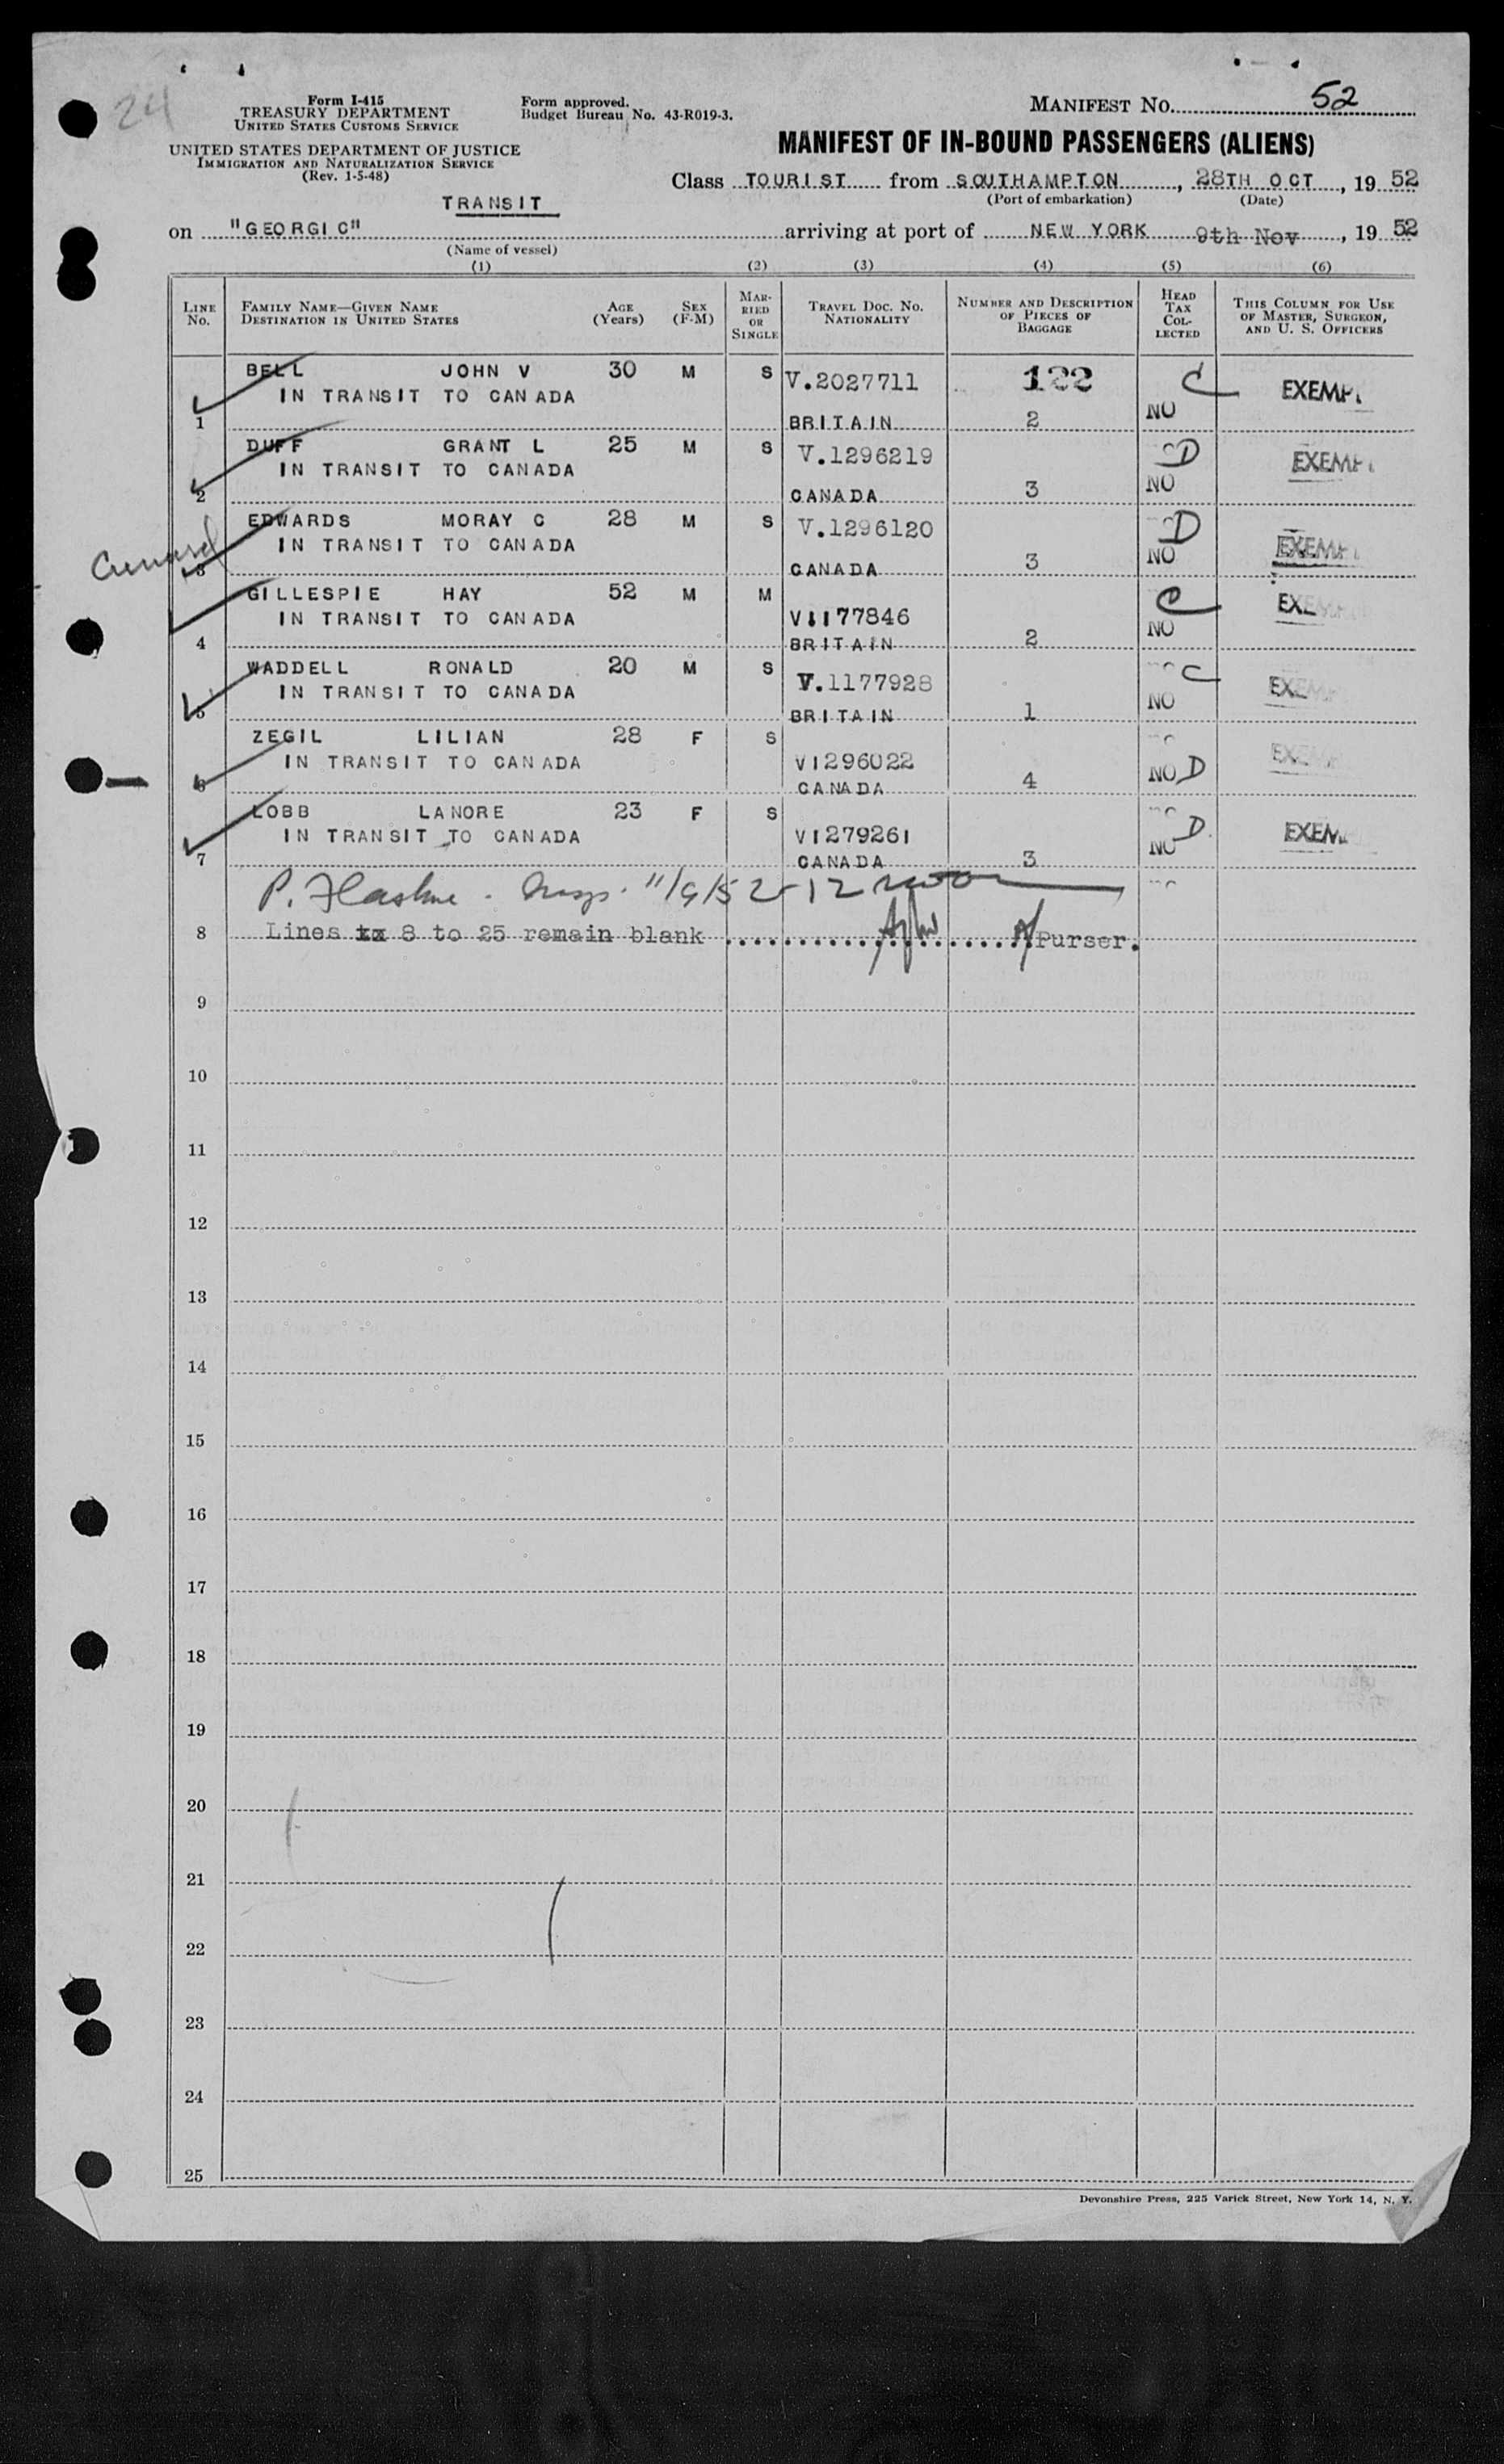 24
Form I-415
TREASURY DEPARTMENT
UNITED STATES CUSTOMS SERVICE
UNITED STATES DEPARTMENT OF JUSTICE
IMMIGRATION AND NATURALIZATION SERVICE
(Rev. 1-5-48)
Form approved.
Budget Bureau No. 43-R019-3.
MANIFEST NO. 52
MANIFEST OF IN-BOUND PASSENGERS (ALIENS)
Class TOURIST from SOUTHAMPTON, 28TH OCT, 19 52
(Port of embarkation) (Date)
TRANSIT
on "GEORGIC" arriving at port of NEW YORK 9th Nov, 19 52
(Name of vessel)
(1) (2) (3) (4) (5) (6)
LINE No. FAMILY NAME—GIVEN NAME DESTINATION IN UNITED STATES AGE (Years) SEX (F-M) MARRIED OR SINGLE TRAVEL DOC. NO. NATIONALITY NUMBER AND DESCRIPTION OF PIECES OF BAGGAGE HEAD TAX COLLECTED THIS COLUMN FOR USE OF MASTER, SURGEON, AND U. S. OFFICERS
BELL JOHN V 30 M S V.2027711 122 C EXEMP
IN TRANSIT TO CANADA
1 BRITAIN 2 NO
DUFF GRANT L 25 M S V.1296219 D EXEMP
IN TRANSIT TO CANADA
2 CANADA 3 NO
EDWARDS MORAY C 28 M S V.1296120 D EXEMP
Cunard IN TRANSIT TO CANADA
3 CANADA 3 NO
GILLESPIE HAY 52 M M C EX
IN TRANSIT TO CANADA V1177846
4 BRITAIN 2 NO
WADDELL RONALD 20 M S V.1177928 C EX
IN TRANSIT TO CANADA
5 BRITAIN 1 NO
ZEGIL LILIAN 28 F S
IN TRANSIT TO CANADA V1296022
6 CANADA 4 NO D EX
LOBB LANORE 23 F S D
IN TRANSIT TO CANADA V1279261 EXEM
7 CANADA 3 NO
P. 11/9/52 - 12 noon
8 Lines 8 to 25 remain blank Purser.
9
10
11
12
13
14
15
16
17
18
19
20
21
22
23
24
25
Devonshire Press, 225 Varick Street, New York 14, N. Y.